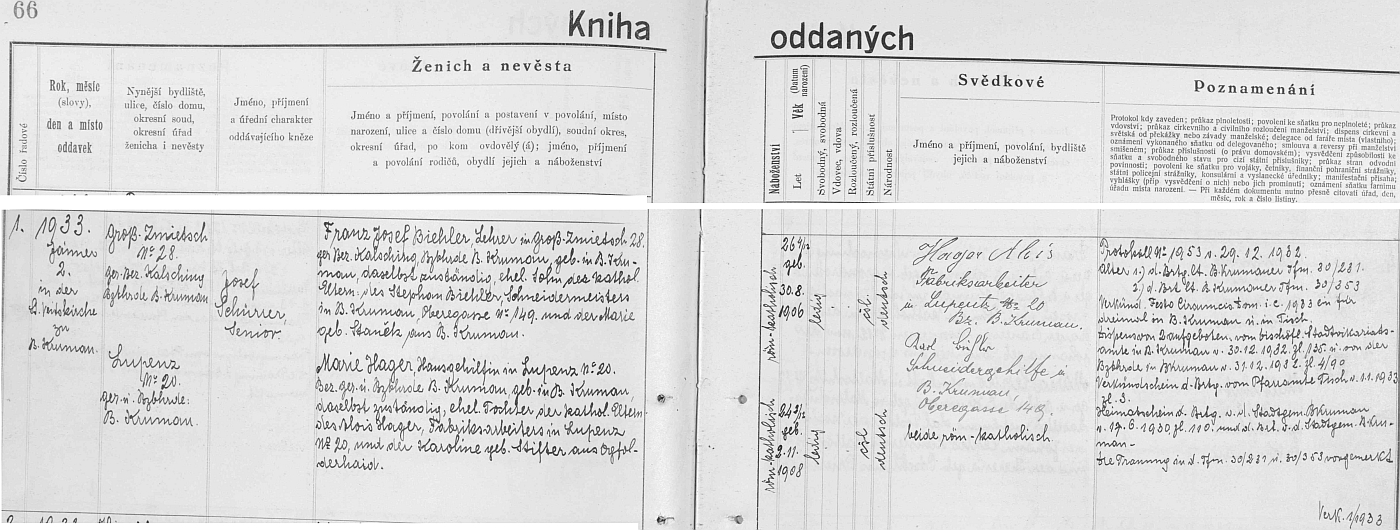 66
Kniha
oddaných
Číslo řadové
Rok, měsíc
(slovy),
den a místo
oddavek
Nynější bydliště,
ulice, číslo domu,
okresní soud,
okresní úřad
ženicha i nevěsty
Jméno, příjmení
a úřední charakter
oddávajícího kněze
Ženich a nevěsta
Jméno a příjmení, povolání a postavení v povolání, místo
narození, ulice a číslo domu (dřívější obydlí), soudní okres,
okresní úřad, po kom ovdovělý (á); jméno, příjmení
a povolání rodičů, obydlí jejich a náboženství
Náboženství
Let | Věk (Datum narození)
Svobodný, svobodná
Vdovec, vdova
Rozloučený, rozloučená
Státní příslušnost
Národnost
Svědkové
Jméno a příjmení, povolání, bydliště
jejich a náboženství
Poznamenání
Protokol kdy zaveden; průkaz plnoletosti; povolení ke sňatku pro neplnoleté; průkaz
vdovství; průkaz církevního a civilního rozloučení manželství; dispens církevní a
světská od překážky nebo závady manželské; delegace od faráře místa (vlastního);
oznámení vykonaného sňatku od delegovaného; smlouva a reversy při manželství
smíšeném; průkaz příslušnosti (o právu domovském); vysvědčení způsobilosti ke
sňatku a svobodného stavu pro cizí státní příslušníky; průkaz stran odvodní
povinnosti; povolení ke sňatku pro vojáky, četníky, finanční pohraniční strážníky,
státní policejní strážníky, konsulární a vyslanecké úředníky; manifestační přísaha;
vyhlášky (příp. vysvědčení o nich) nebo jich prominutí; oznámení sňatku farnímu
úřadu místa narození. — Při každém dokumentu nutno přesně citovati úřad, den,
měsíc, rok a číslo listiny.
1.
1933.
Jänner
2.
in der
St. Veitskirche
zu
B. Krumau.
Groß-Zmietsch
No 28.
ger. Bez. Kalsching
Bzbhrde B. Krumau
Josef
Schürrer,
Senior.
Franz Josef Biehler, Lehrer in Groß-Zmietsch 28.
ger. Bez. Kalsching, Bzbhrde B. Krumau, geb. in B. Kru-
mau, daselbst zuständig, ehel. Sohn des kathol.
Eltern: des Stephan Biehler, Schneidermeisters
in B. Krumau, Oberegasse No 149. und der Marie
geb. Staněk aus B. Krumau.
Lupenz
No 20.
ger. u. Bzbhrde:
B. Krumau.
Marie Hager, Hausgehilfin in Lupenz No 20.
Bez. ger. u. Bzbhrde B. Krumau, geb. in B. Krumau,
daselbst zuständig, ehel. Tochter der kathol. Eltern
des Alois Hager, Fabriksarbeiters in Lupenz
No 20, und der Karoline geb. Stifter aus Ogfol-
derhaid.
röm-katholisch
26 4/12
geb.
30.8.
1906
ledig
čsl
deutsch
Hager Alois
Fabriksarbeiter
in Lupenz No 20
Bz. B. Krumau.
röm-katholisch
geb.
1908
ledig
čsl
deutsch
Karl
Schneidergehilfe in
B. Krumau,
Oberegasse 149.
beide röm-katholisch
Protokoll No 1953 v. 29. 12. 1932.
Alter 1.) d. Brtg. lt. B. Krumauer Tfm. 30/231.
2.) d. Brt. lt. B. Krumauer Tfm. 30/353
1933 ein für
dreimal in B. Krumau u. in Tisch.
Dispens von 2 Aufgeboten, vom bischöfl. Stadtvikariats-
amte in B. Krumau v. 30. 12. 1932. Zl. 135. u. von der
Bzbhrde in B. Krumau v. 31. 12. 1932. Zl. 4/90
Verkündschein d. Brtg. vom Pfarramte Tisch v. 1.1. 1933
Zl. 3.
Heimatschein d. Brtg. v. d. Stadtgem. B. Krumau
v. 19. 6. 1930. Zl. 110. und d. Brt. v. d. Stadtgem. B. Kru-
mau-
die Trauung in d. Tfm. 30/231 u. 30/353 vorgemerkt
Verk. 1/1933